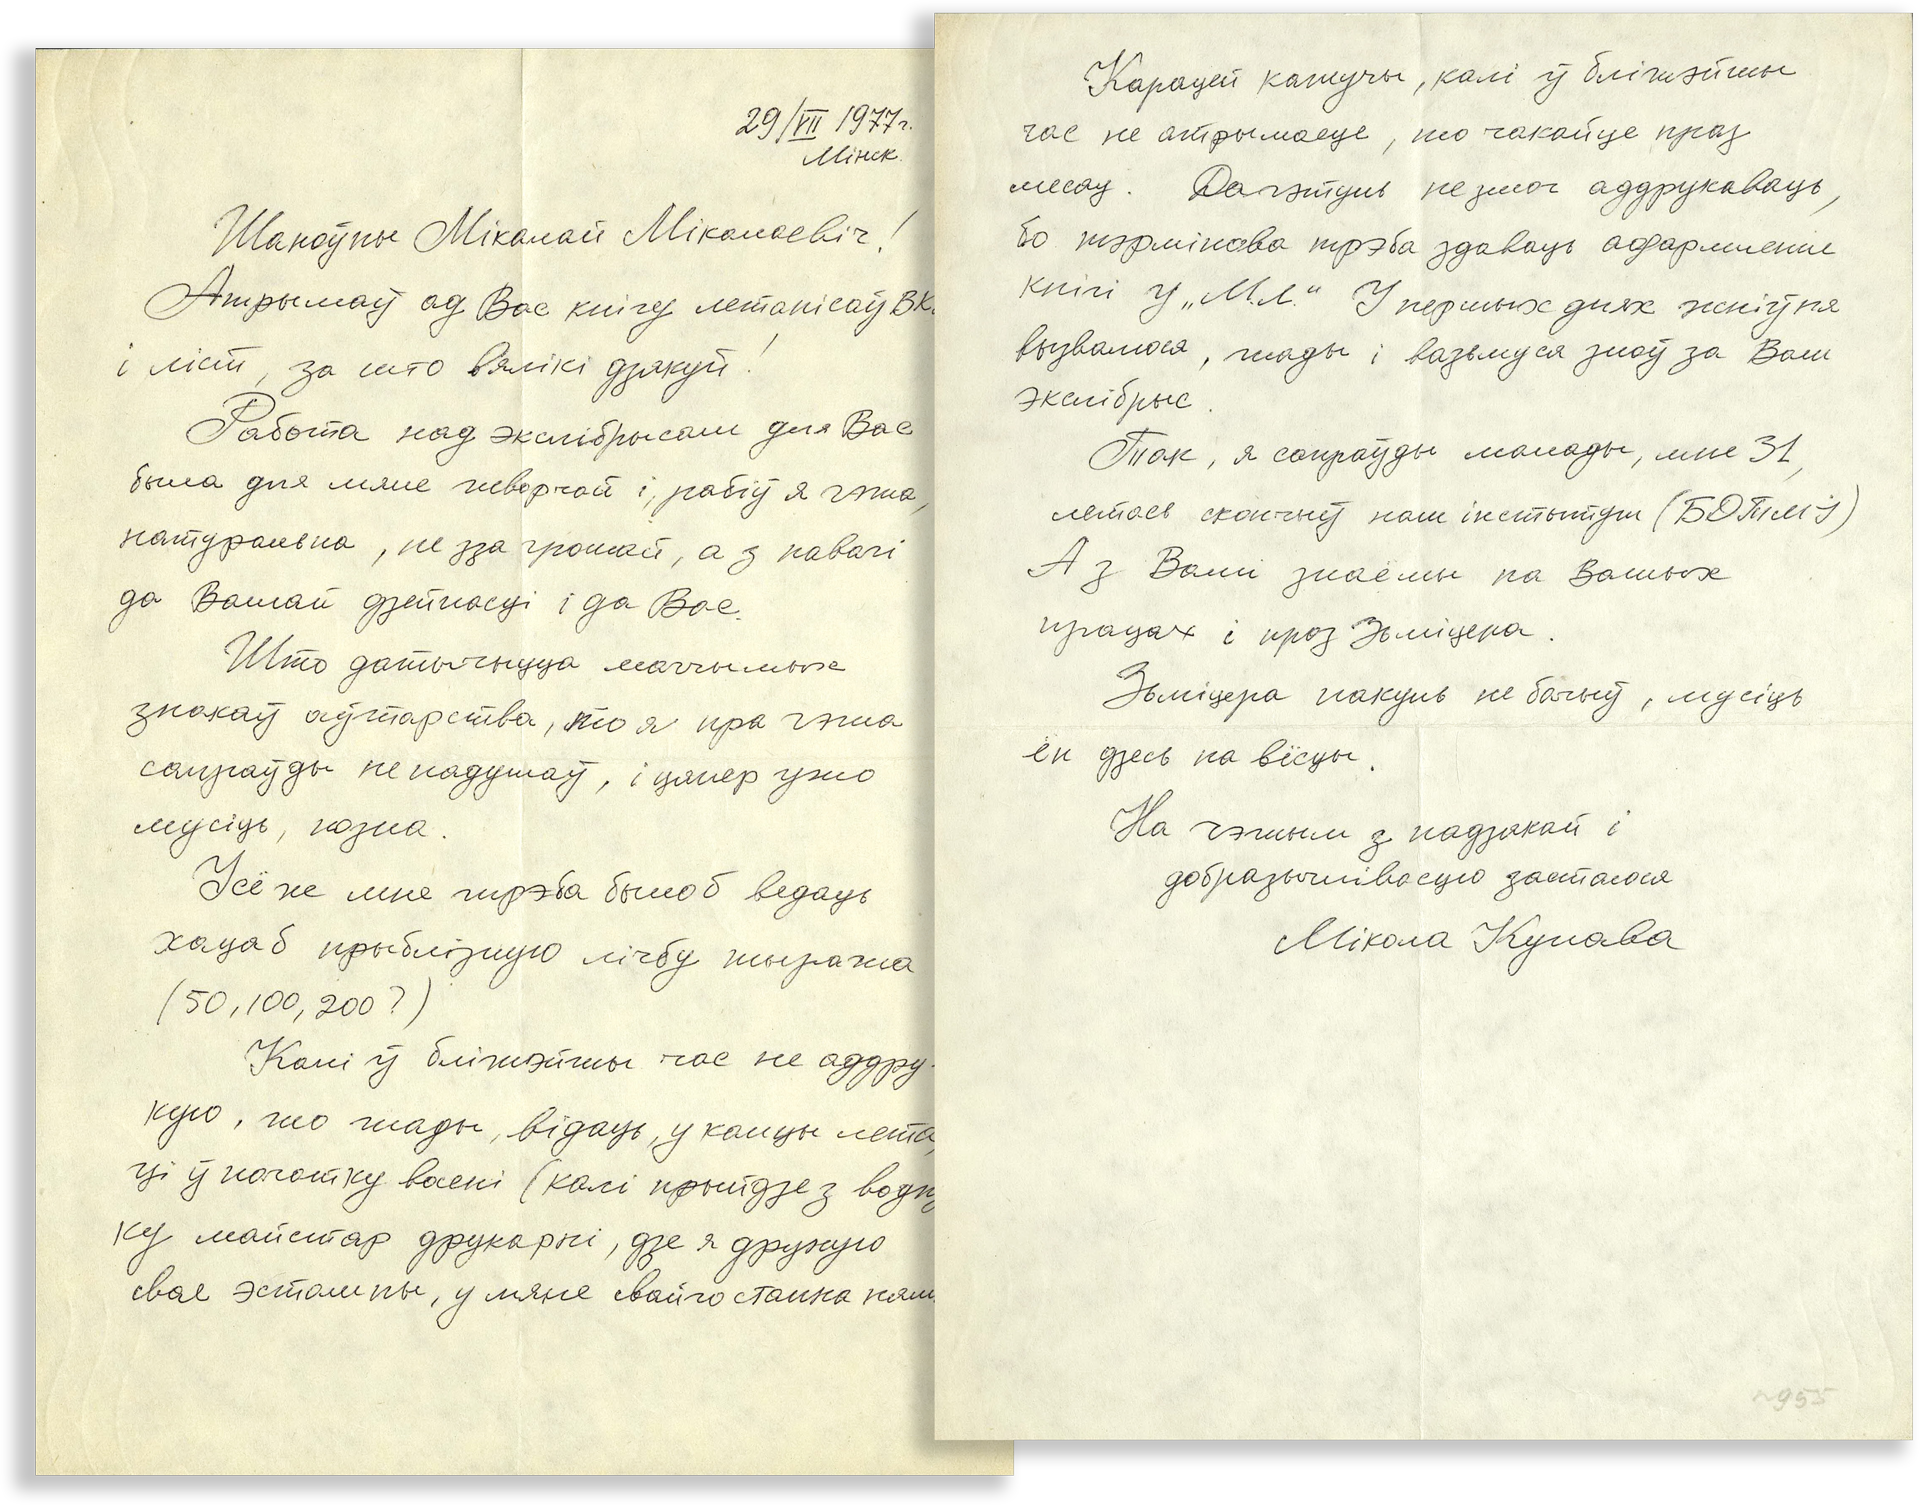 29/VII 1977г.
Мінск.
Шаноўны Мікалай Мікалаевіч!
Атрымаў ад Вас кнігу летапісаў ВК
і ліст, за што вялікі дзякуй!
Работа над экслібрысам для Вас
была для мяне творчай і, рабіў я гэта,
натуральна, не зза грошай, а з павагі
да Вашай дзейнасці і да Вас.
Што датычыцца магчымых
знакаў аўтарства, то я пра гэта
сапраўды не падумаў, і цяпер ужо
мусіць, позна.
Усё ж мне трэба было б ведаць
хаця б прыблізную лічбу тыража
(50, 100, 200?)
Калі ў бліжэйшы час не аддру-
кую, то тады, відаць, у канцы лета,
ці ў пачатку васені (калі прыйдзе з водпу
ку майстар друкарні, дзе я друкую
свае эстампы, у мяне свайго станка ням
Карацей кажучы, калі ў бліжэйшы
час не атрымаеце, то чакайце праз
месяц. Дагэтуль не змог аддрукаваць,
бо тэрмінова трэба здаваць афармленне
кнігі у „М.Л.“ У першых днях жніўня
вызвалюся, тады і вазьмуся зноў за Ваш
экслібрыс.
Так, я сапраўды малады, мне 31,
летась скончыў наш інстытут (БДТМІ)
А з Вамі знаёмы па Вашых
працах і праз Зьміцера.
Зьміцера пакуль не бачыў, мусіць
ён дзесь на вёсцы.
На гэтым з падзякай і
добразычлівасцю застаюся
Мікола Купава
~955